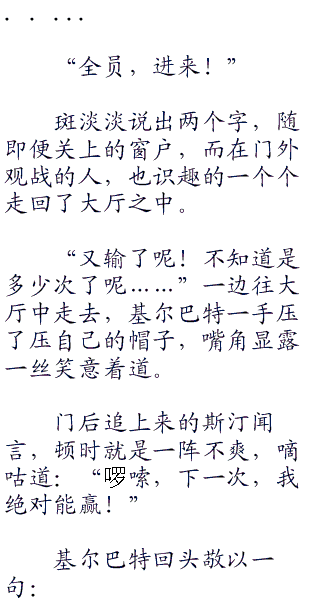 . . ...
“全员，进来！”
斑淡淡说出两个字，随
即便关上的窗户，而在门外
观战的人，也识趣的一个个
走回了大厅之中。
“又输了呢！不知道是
多少次了呢……”一边往大
厅中走去，基尔巴特一手压
了压自己的帽子，嘴角显露
一丝笑意着道。
门后追上来的斯汀闻
言，顿时就是一阵不爽，嘀
咕道：“啰嗦，下一次，我
绝对能赢！”
基尔巴特回头敬以一
句：